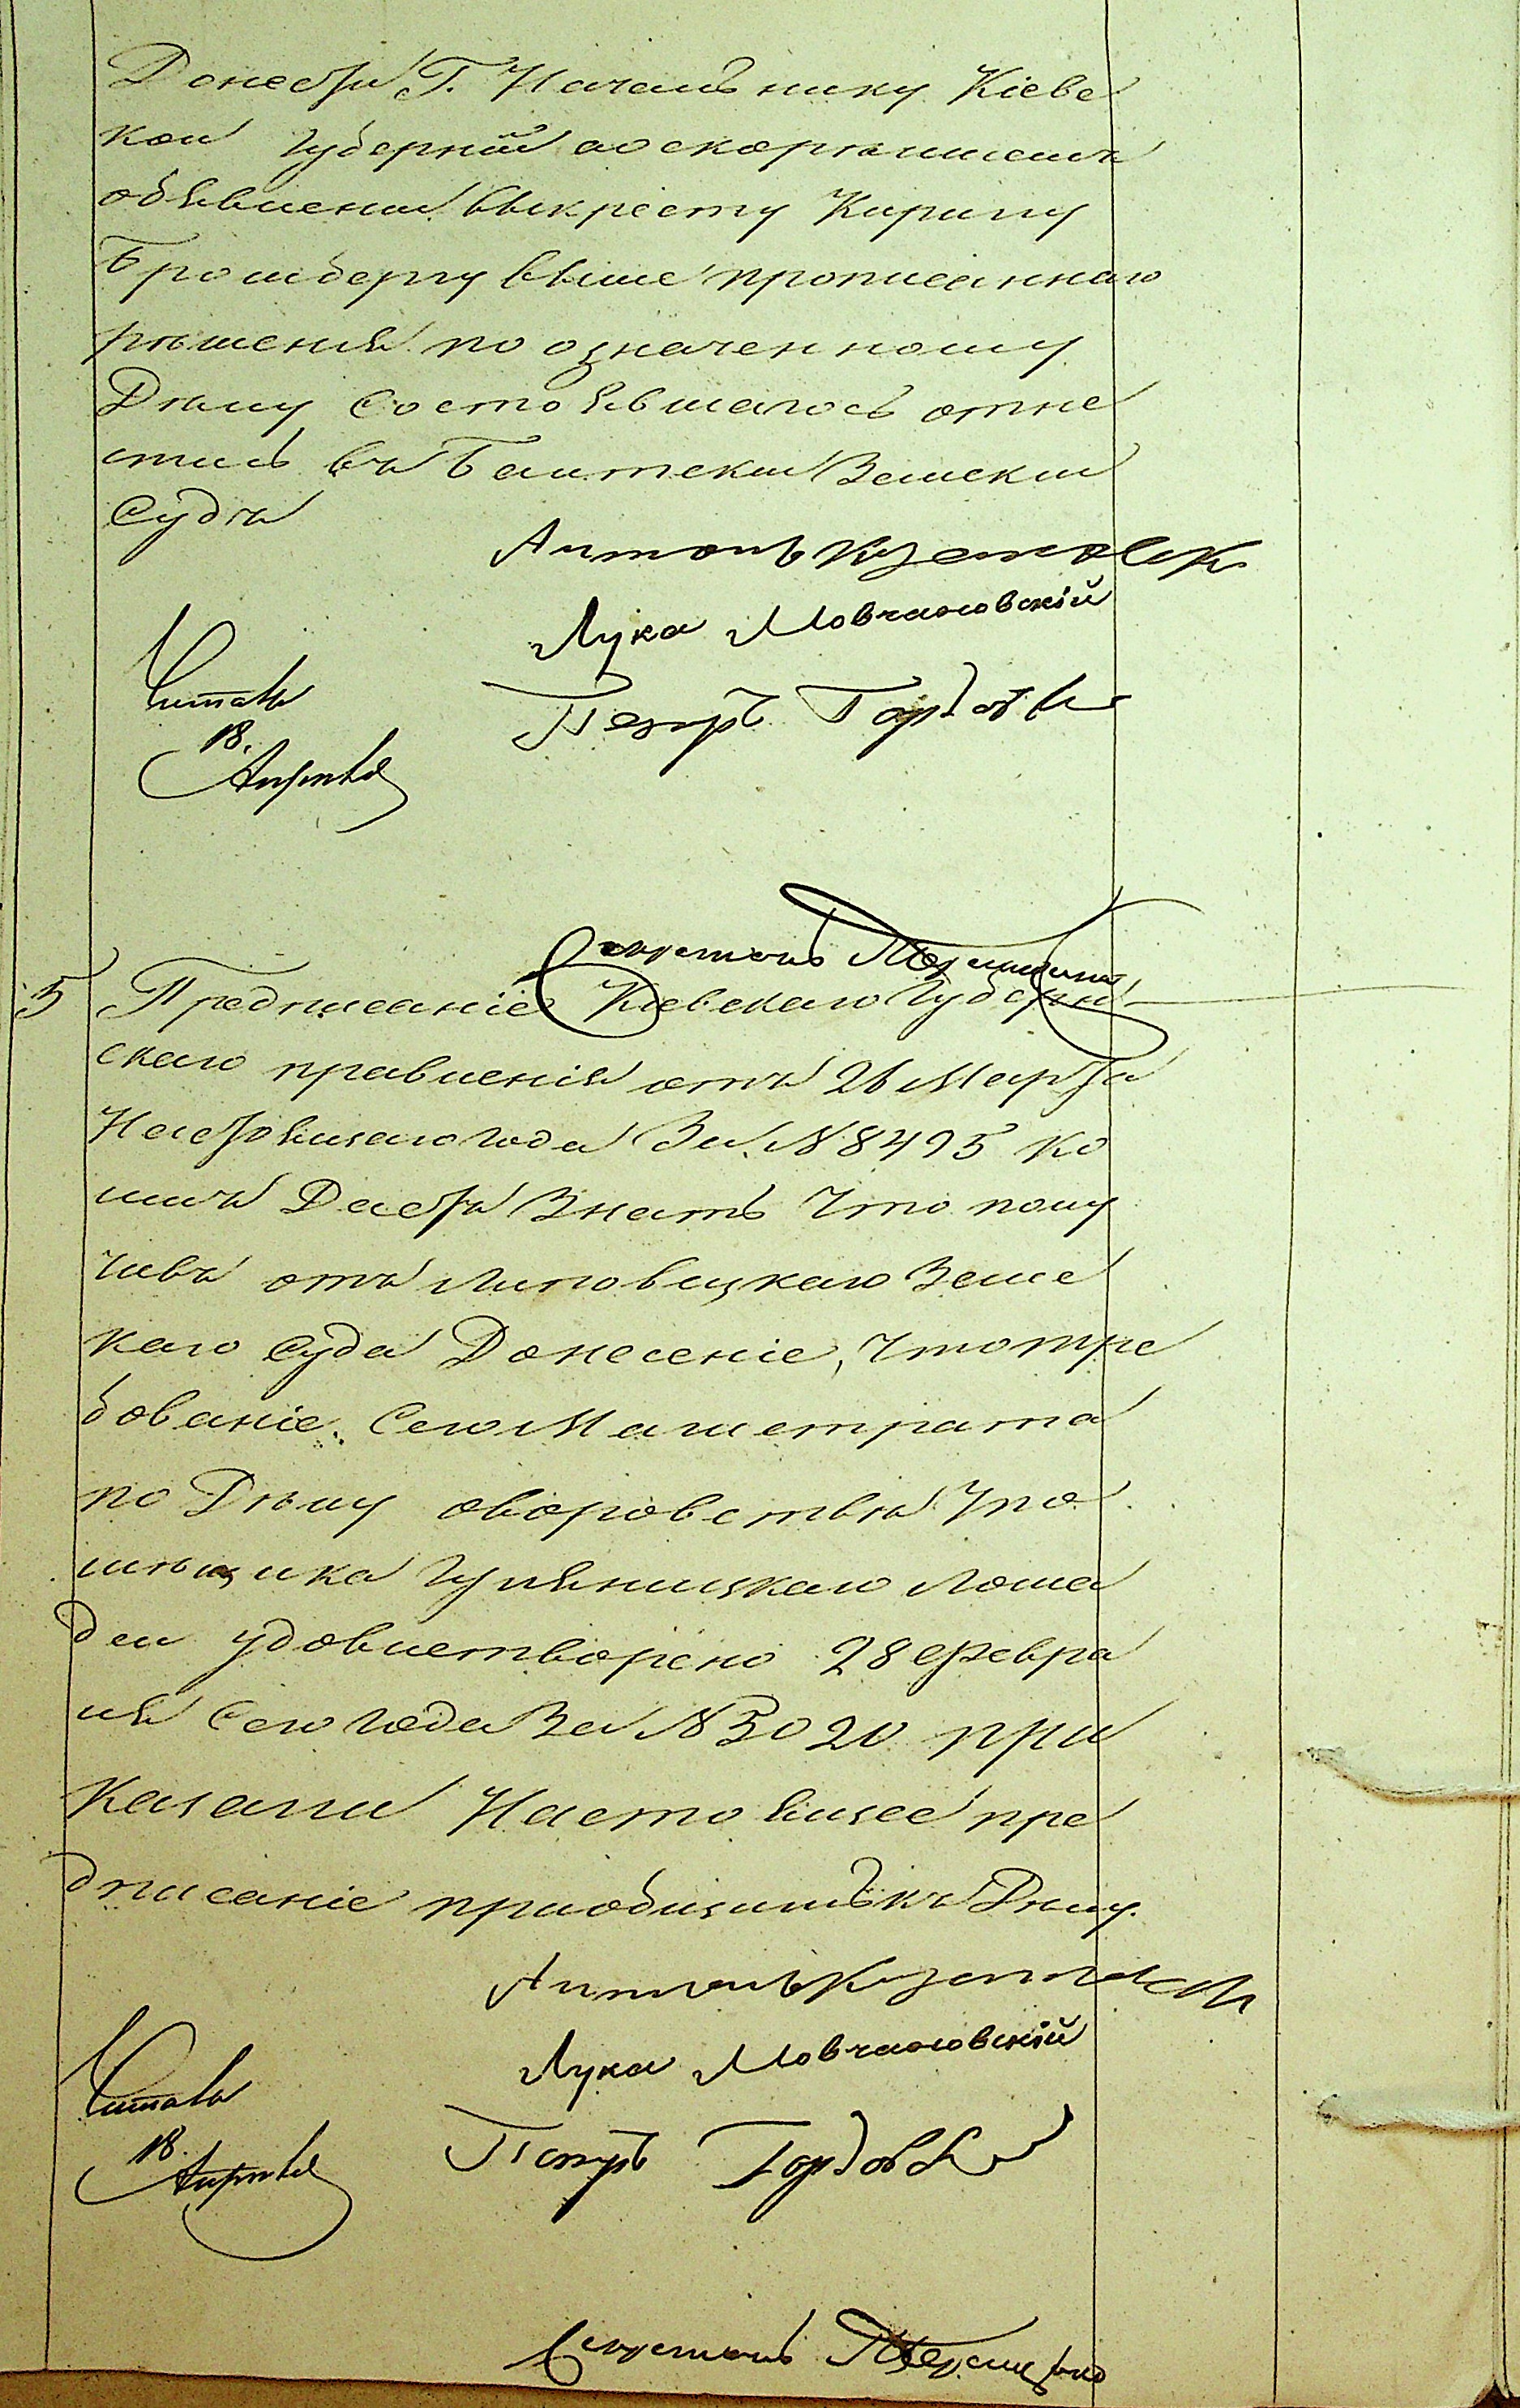 Донести Г. Начальнику Кіевс
кой Губерніи а о скорѣйшемъ
объявленіи выкресту Кирилу
Бромбергу выше прописаннаго
рѣшенія по означенному
Дѣлу состоявшагось отне
стись въ Таитскій Земскій
Судъ
Антонъ
Лука Мовчановскій
Петръ
Читалъ
18.
Апрѣля
Секретарь
5 Предписаніе Кіевскаго Губерн
скаго правленія отъ 26 Марта
Настоящаго года За № 8495 ко
имъ Даетъ Знать Что полу
чивъ отъ Липовецкаго Земс
каго Суда Донесеніе, Что тре
бованіе Сего Магистрата
по Дѣлу оворовствѣ Упо
мѣщика Гуляницкаго Лоша
дей удовлетворено 28 Февра
ля Сего года За № 3020 при
казали Настоящее пре
дписаніе приобщить къ Дѣлу.
Антонъ
Лука Мовчановскій
Петръ
Читалъ
18.
Апрѣля
Секретарь